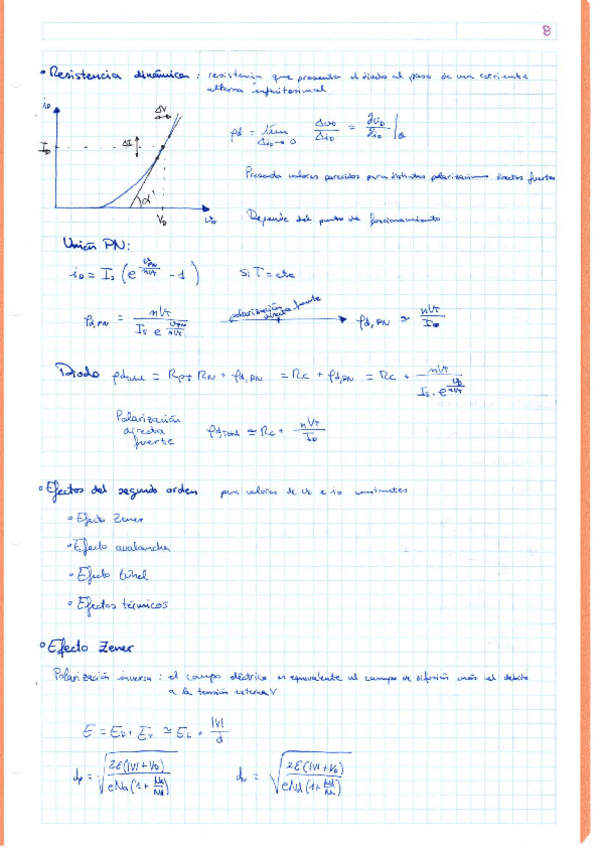 8
• Resistencia dinámica : resistencia que presenta el diodo al paso de una corriente
alterna infinitesimal
i_D
ΔV
ΔI
I_D
α'
V_D
v_D
ρd = lím_{Δi_D→0} Δv_D/Δi_D = ∂v_D/∂i_D |_Q
Presenta valores parecidos para distintas polarizaciones directas fuertes
Depende del punto de funcionamiento
Unión PN:
i_D = I_s (e^{v_PN/nV_T} - 1) Si T = cte
ρ_{d,PN} = nV_T / (I_s e^{v_PN/nV_T}) polarización directa fuerte → ρ_{d,PN} ≃ nV_T/I_D
Diodo ρ_{d,total} = R_P + R_N + ρ_{d,PN} = R_C + ρ_{d,PN} = R_C + nV_T / (I_s · e^{v_D/nV_T})
Polarización
directa
fuerte
ρ_{d,Total} ≃ R_C + nV_T/I_D
• Efectos del segundo orden para valores de v_D e i_D constantes
• Efecto Zener
• Efecto avalancha
• Efecto túnel
• Efectos térmicos
• Efecto Zener
Polarización inversa : el campo eléctrico es equivalente al campo de difusión más el debido
a la tensión externa V
E = E_D + E_V ≃ E_C + |V|/d
d_p = √(2ε(|V|+V_0) / (eN_a(1+N_a/N_d))) d_n = √(2ε(|V|+V_0) / (eN_d(1+N_d/N_a)))